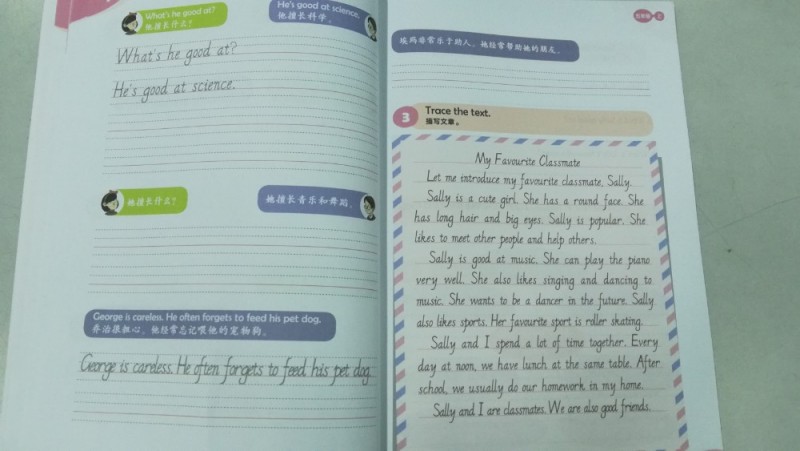 What's he good at?
他擅长什么?
He's good at science.
他擅长科学。
What's he good at?
He's good at science.
她擅长什么?
她擅长音乐和舞蹈。
George is careless. He often forgets to feed his pet dog.
乔治很粗心。他经常忘记喂他的宠物狗。
George is careless. He often forgets to feed his pet dog.
埃玛非常乐于助人。她经常帮助她的朋友。
3 Trace the text.
描写文章。
My Favourite Classmate
Let me introduce my favourite classmate, Sally.
Sally is a cute girl. She has a round face. She
has long hair and big eyes. Sally is popular. She
likes to meet other people and help others.
Sally is good at music. She can play the piano
very well. She also likes singing and dancing to
music. She wants to be a dancer in the future. Sally
also likes sports. Her favourite sport is roller skating.
Sally and I spend a lot of time together. Every
day at noon, we have lunch at the same table. After
school, we usually do our homework in my home.
Sally and I are classmates. We are also good friends.